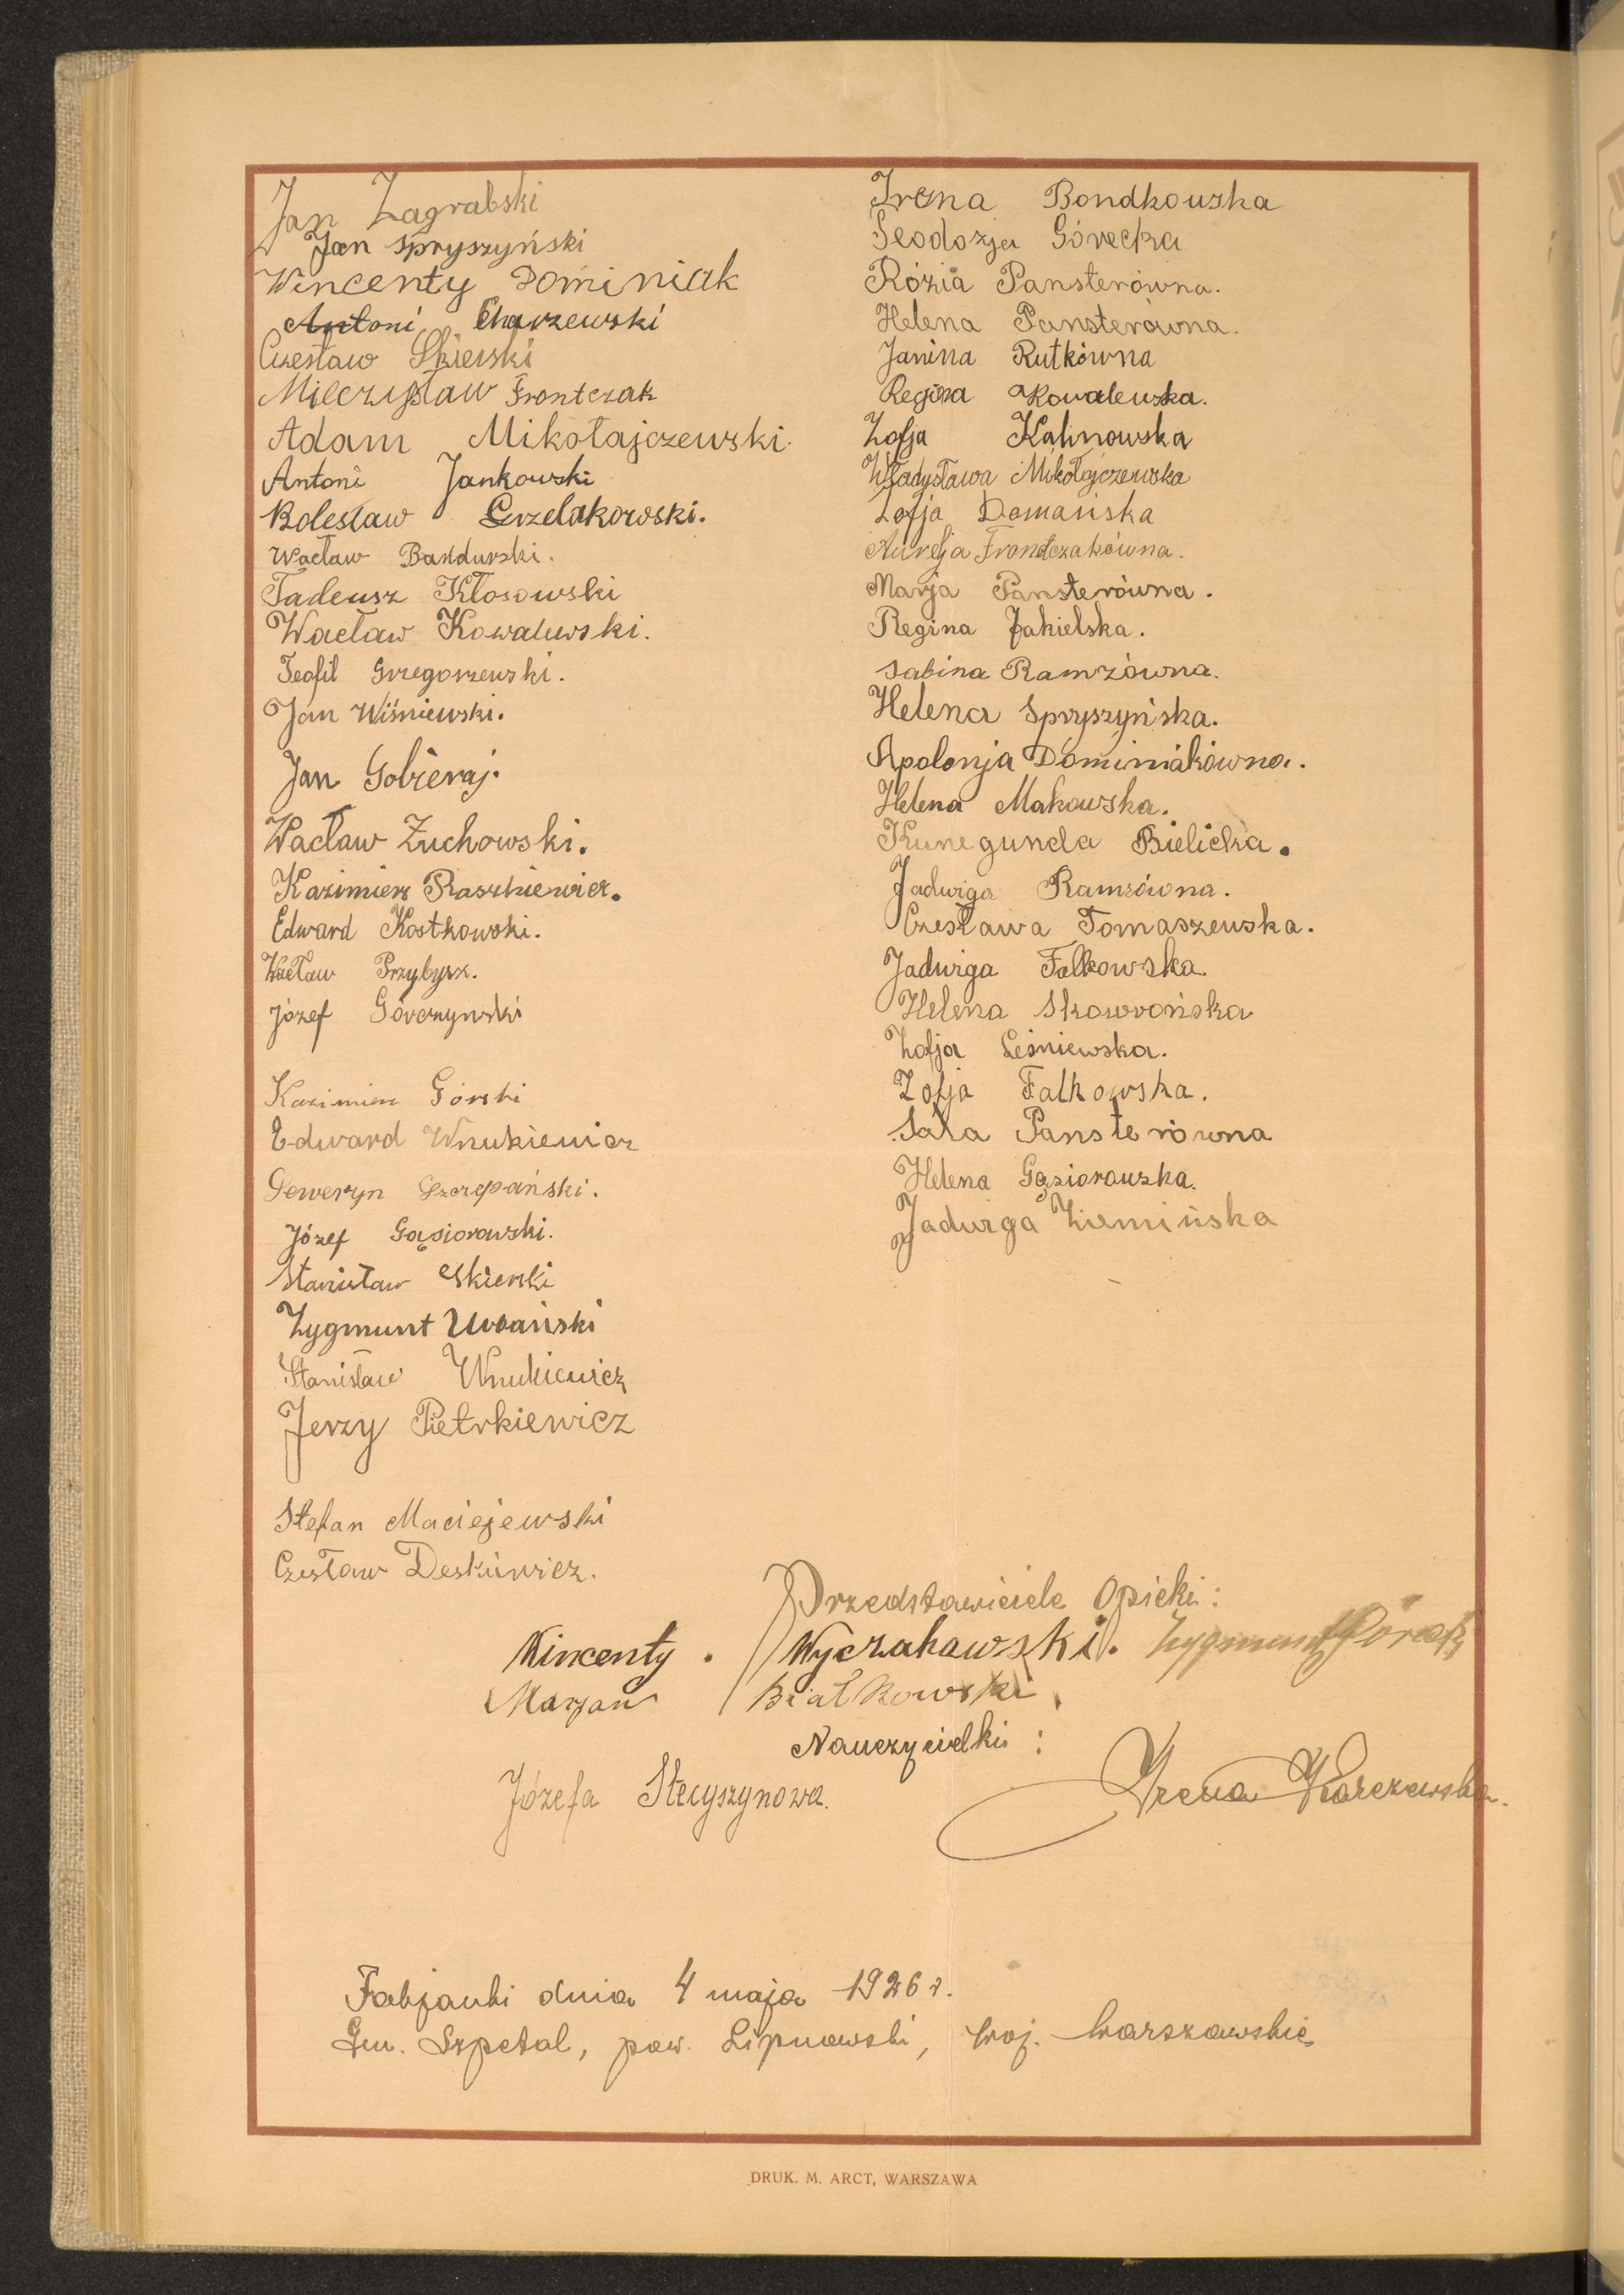 Jan Zagrabski
Jan Spryszyński
Wincenty Dominiak
Antoni Charzewski
Czesław Skierski
Mieczysław Frontczak
Adam Mikołajczewski.
Antoni Jankowski
Bolesław Grzelakowski.
Wacław Bandurski.
Tadeusz Kłosowski
Wacław Kowalewski.
Teofil Grzegorzewski.
Jan Wiśniewski.
Jan Gobieraj.
Wacław Żuchowski.
Kazimierz Raszkiewicz.
Edward Kostkowski.
Wacław Przybysz.
Józef Górczyński
Kazimierz Górski
Edward Wnukiewicz
Seweryn Szczepański.
Józef Gąsiorowski.
Stanisław Skierski
Zygmunt Urbański
Stanisław Wnukiewicz
Jerzy Pietrkiewicz
Stefan Maciejewski
Czesław Deskiewicz.
Irena Bondkowska
Teodozja Górecka
Rózia Pansterówna.
Helena Pansterówna.
Janina Rutkówna
Regina Kowalewska.
Zofja Kalinowska
Władysława Mikołajczewska
Zofja Domańska
Aurelja Frontczakówna.
Marja Pansterówna.
Regina Jakielska.
Sabina Ramzówna.
Helena Spryszyńska.
Apolonja Dominiakówna.
Helena Makowska.
Kunegunda Bielicka.
Jadwiga Ramzówna.
Czesława Tomaszewska.
Jadwiga Falkowska
Helena Skowrońska
Zofja Leśniewska.
Zofja Falkowska.
Sara Pansterówna
Helena Gąsiorowska.
Jadwiga Ziemińska
Przedstawiciele Opieki:
Wincenty. Wyczakowski. Zygmunt Górecki
Marjan Białkowski
Nauczycielki:
Józefa Stecyszynowa. Irena Karczewska.
Fabjanki dnia 4 maja 1926 r.
Gm. Szpetal, pow. Lipnowski, Woj. Warszawskie
DRUK. M. ARCT, WARSZAWA